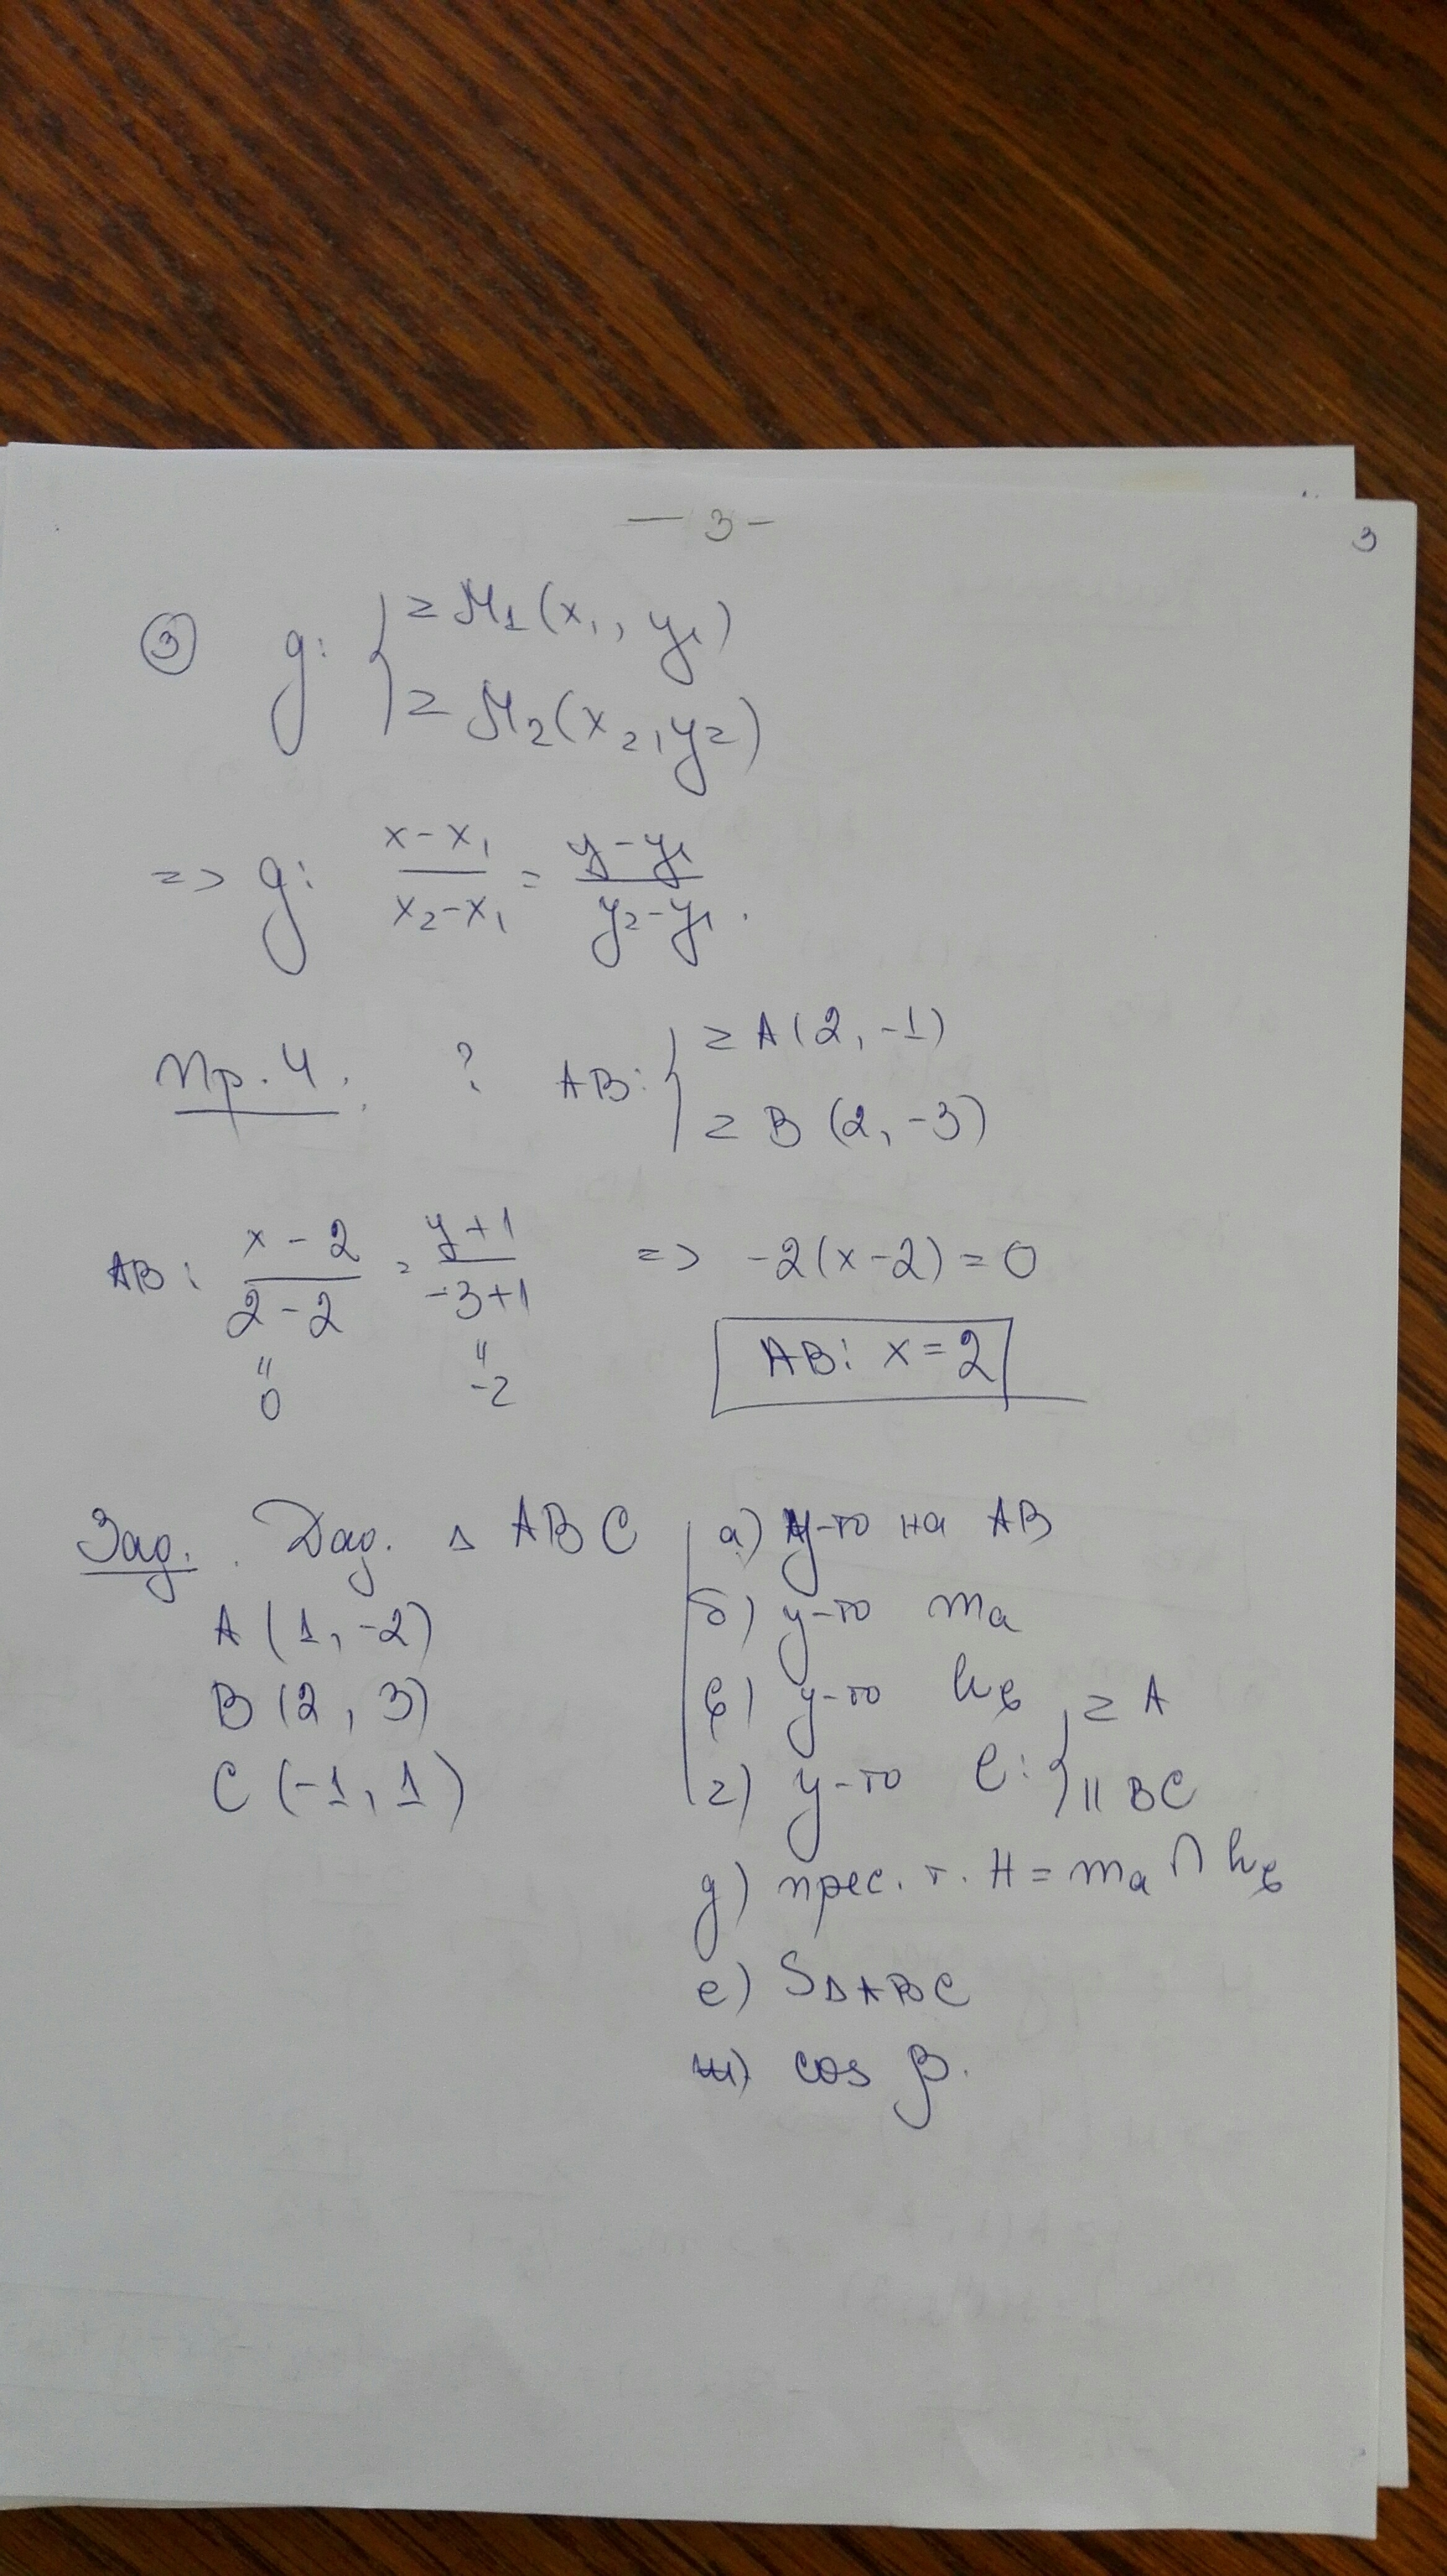 — 3 -
3
③ g: { ≥ M₁(x₁, y₁)
≥ M₂(x₂, y₂)
=> g: (x-x₁)/(x₂-x₁) = (y-y₁)/(y₂-y₁).
Пр. 4. ? AB: { ≥ A(2, -1)
≥ B(2, -3)
AB: (x-2)/(2-2) = (y+1)/(-3+1) => -2(x-2)=0
" "
0 -2
AB: x=2
Зад. Дад. Δ ABC
A(1, -2)
B(2, 3)
C(-1, 1)
а) у-то на AB
б) у-то mₐ
в) у-то h_в
г) у-то l: { ≥ A
|| BC
д) прес. т. H = mₐ ∩ h_в
е) S_ΔABC
ж) cos β.